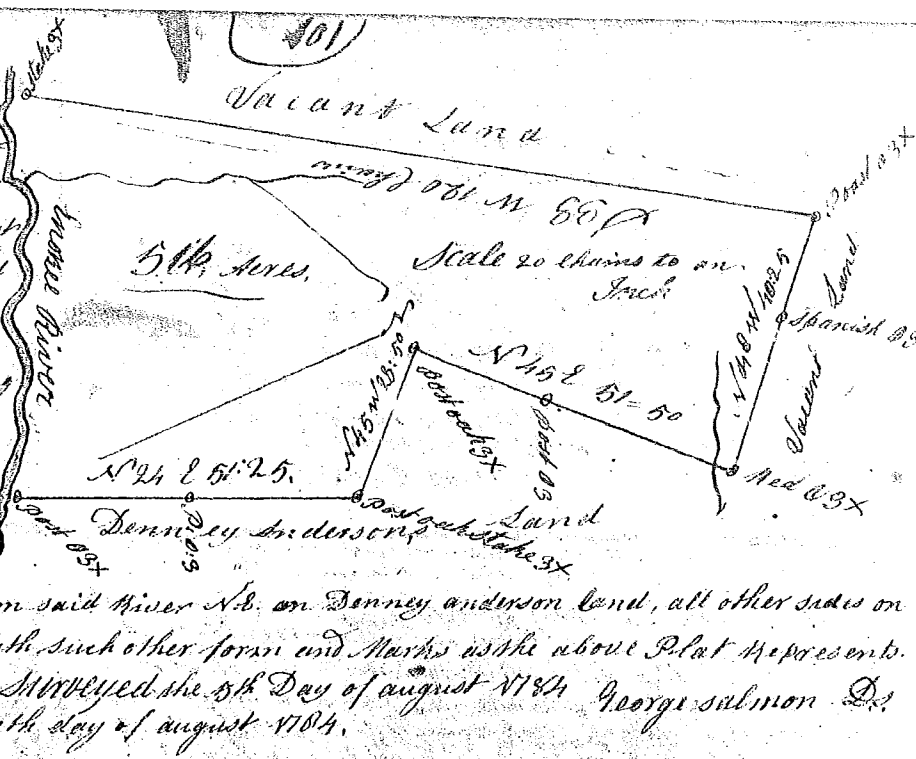 101
Stake 3X
Vacant Land
S 33 W 120 Chains
Poast o 3X
Enoree River
516 Acres.
Scale 20 Chains to an
Inch
N 48 W 40:25
Spanish O3
Vacant Land
N 45 W 23:50
Post oak 3X
N 49 E 51=50
Post O3
Red O 3X
N 24 E 51:25.
Post O3X
P: O:3
Denney Anderson's Land
Post oak Stake 3X
m said River N.E. on Denney anderson land, all other sides on
th such other form and Marks as the above Plat Represents.
Surveyed the 5th Day of august 1784 George salmon Ds.
th day of august 1784.